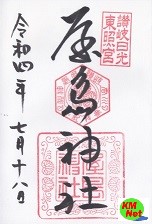 讃岐日光
東照宮
屋島神社
令和四年
七月十八日
KM
Net